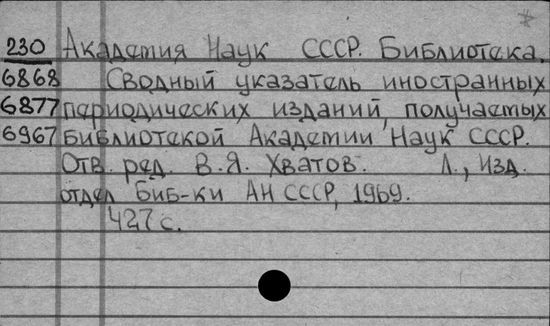 230 Академия Наук СССР. Библиотека.
6868 Сводный указатель иностранных
6877 периодических изданий, получаемых
6967 библиотекой Академии Наук СССР.
Отв. ред. В.Я. Хватов. Л., Изд.
отдел Биб-ки АН СССР, 1969.
427 с.